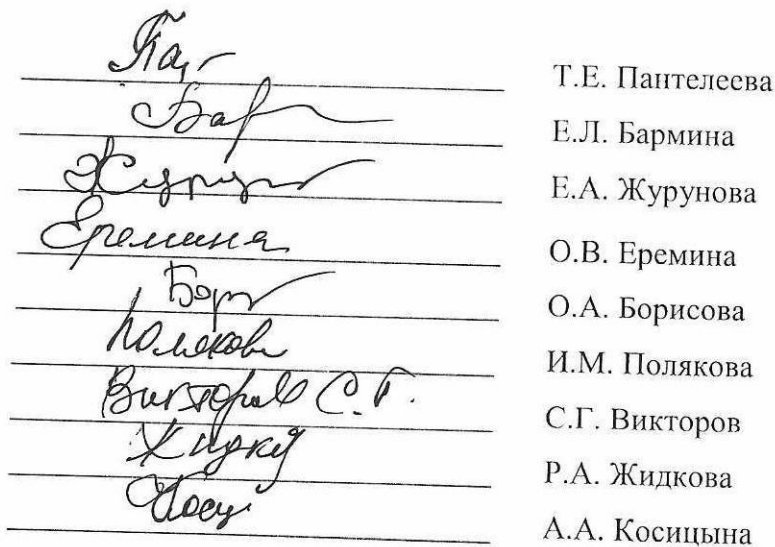 Т.Е. Пантелеева
Бар Е.Л. Бармина
Е.А. Журунова
Еремина О.В. Еремина
Бор О.А. Борисова
Полякова И.М. Полякова
Викторов С.Г. С.Г. Викторов
Жидк Р.А. Жидкова
Коси А.А. Косицына